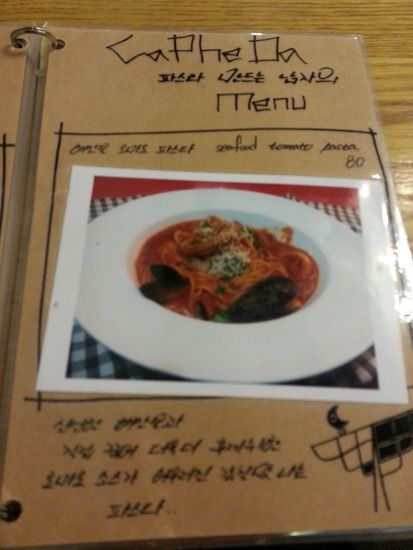 CaPhe Da
파스타 만드는 남자의,
Menu
해산물 토마토 파스타 seafood tomato pasta
8.0
신선한 해산물과
직접 끓여
토마토 소스가 어우러진 감칠맛나는
파스타..